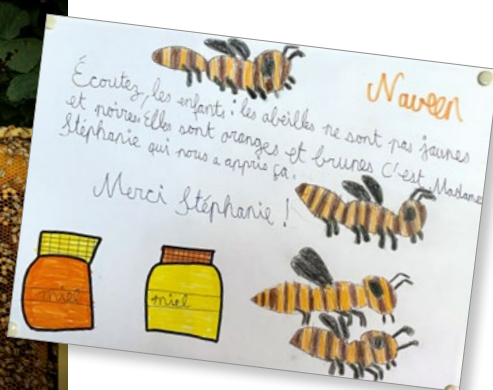 Naveen
Écoutez, les enfants : les abeilles ne sont pas jaunes
et noires. Elles sont oranges et brunes C'est Madame
Stéphanie qui nous a appris ça.
Merci Stéphanie !
miel
miel